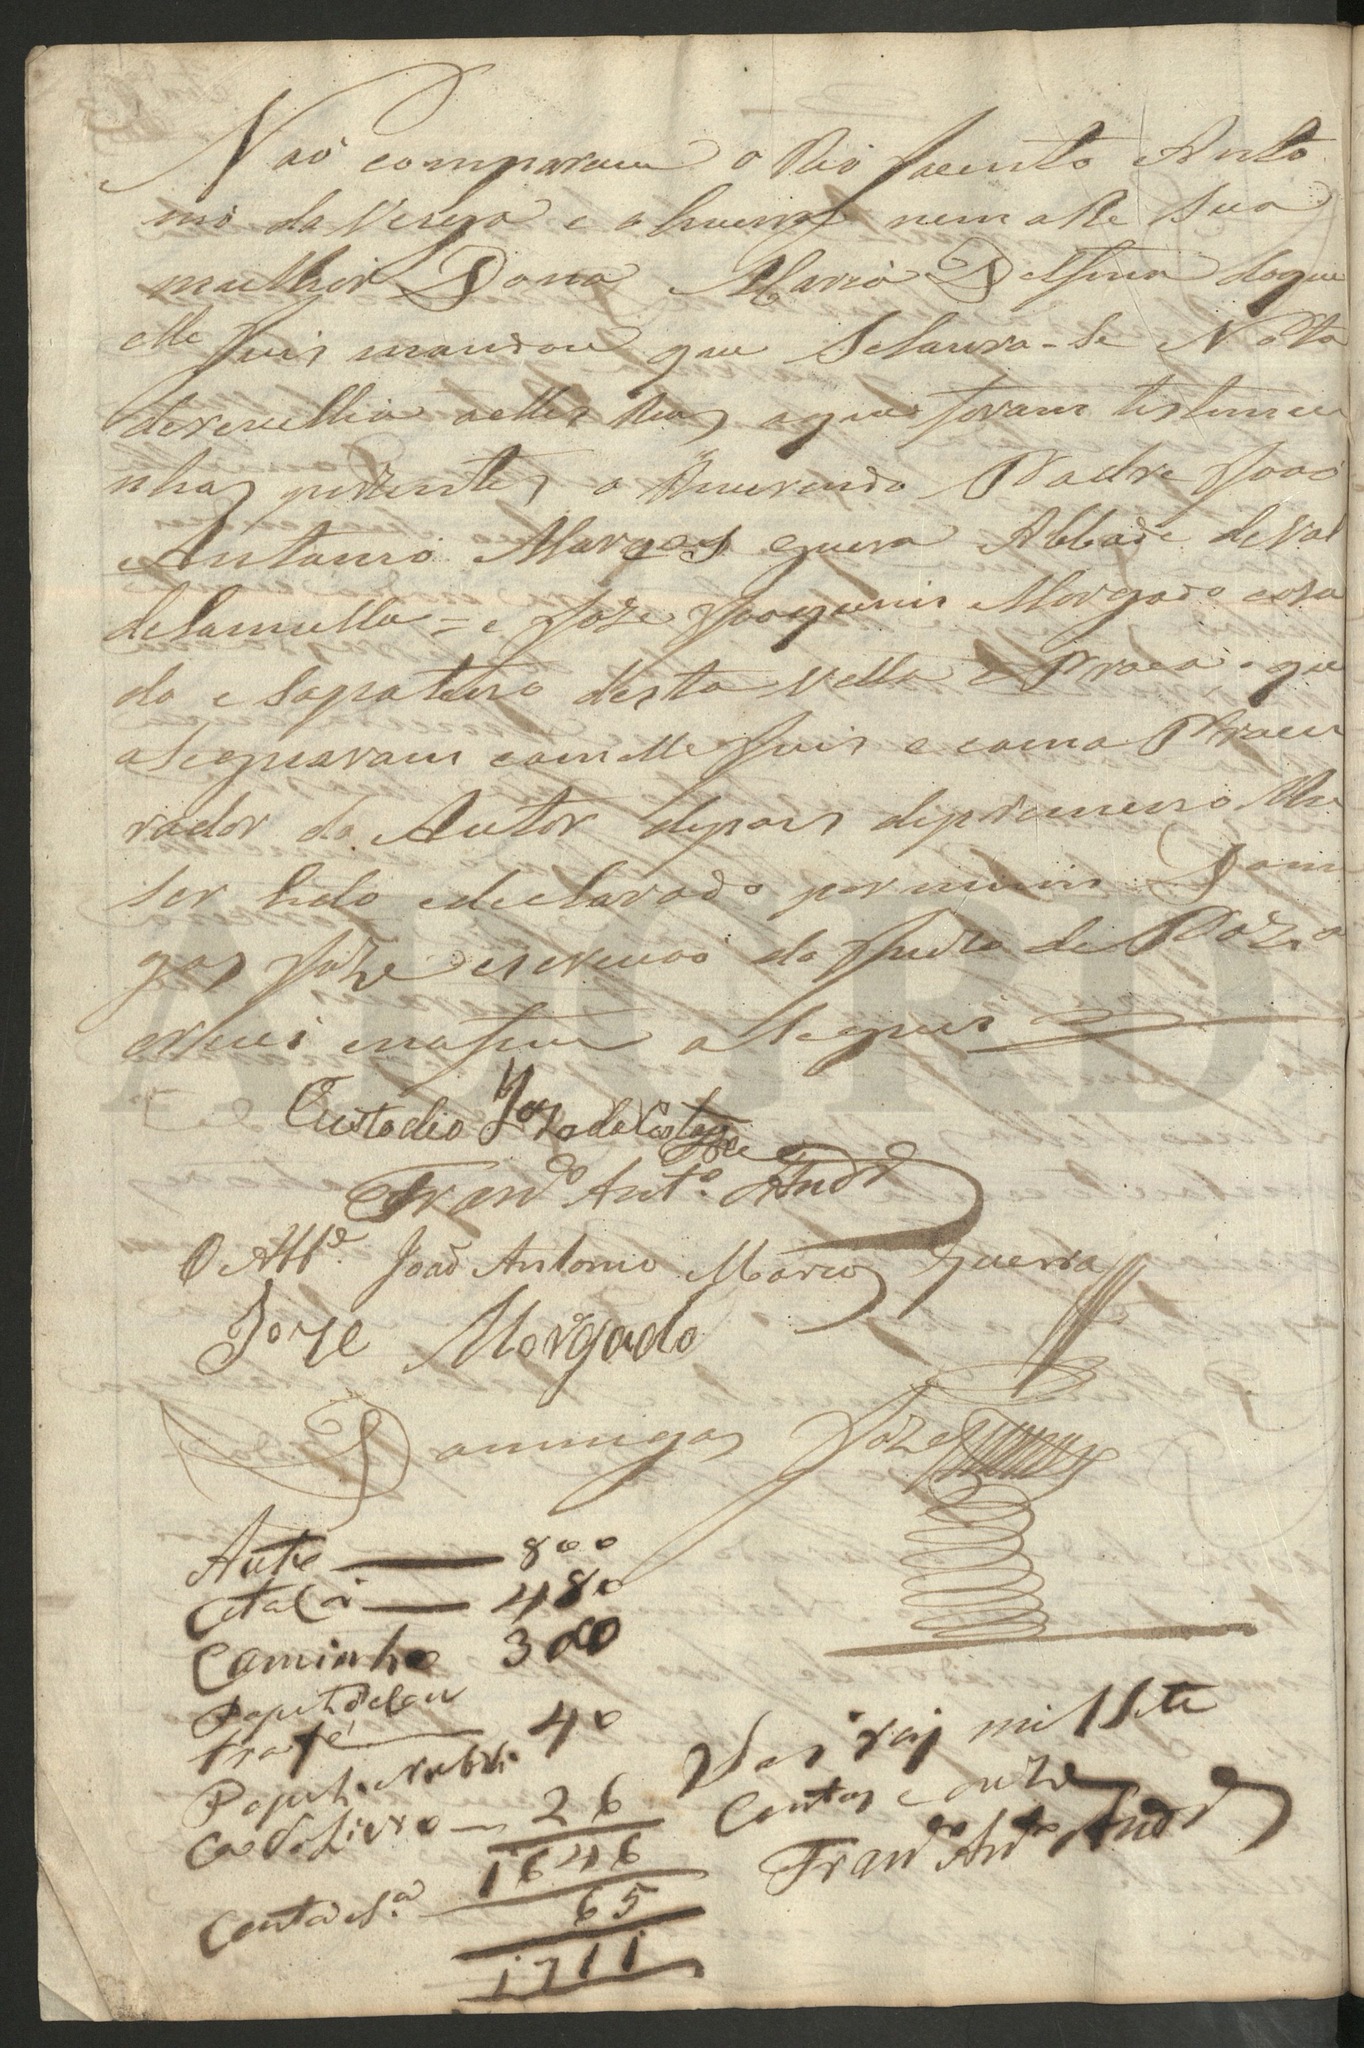 Naõ compareceu o Reo Jacinto Anto
nio da Veiga e a
mulher Dona Maria Delfina doque
elle Juis mandou que Selavra-se Nota
derevellia aelles Reos aque foram testemu
nhas prezentes o Reverendo Padre Joaõ
Antonio Marcos guera Abbade deVal
delamulla = e Joze Joaquim Morgado caza
do e Sapateiro desta Villa e Praça que
aSignaram comelle Juis e como Procu
rador do Autor depois deprimeiro lhe
ser lido edeclarado por mim Domin
gos Joze escrivaõ do Juizo de Paz o
escrevi easigno
Custodio Joze da Costa
Franco. Anto. Andr
O Abbe. Joaõ Antonio Marcos Guerra
Joze Morgado
Domingos Joze
Auto — 800
Citaçaõ — 480
Caminho 300
40
26
1646
Conta desta. 65
1711
Saõ reis mil Sete
Centos e onze
Franco Anto Andr
ADGRD